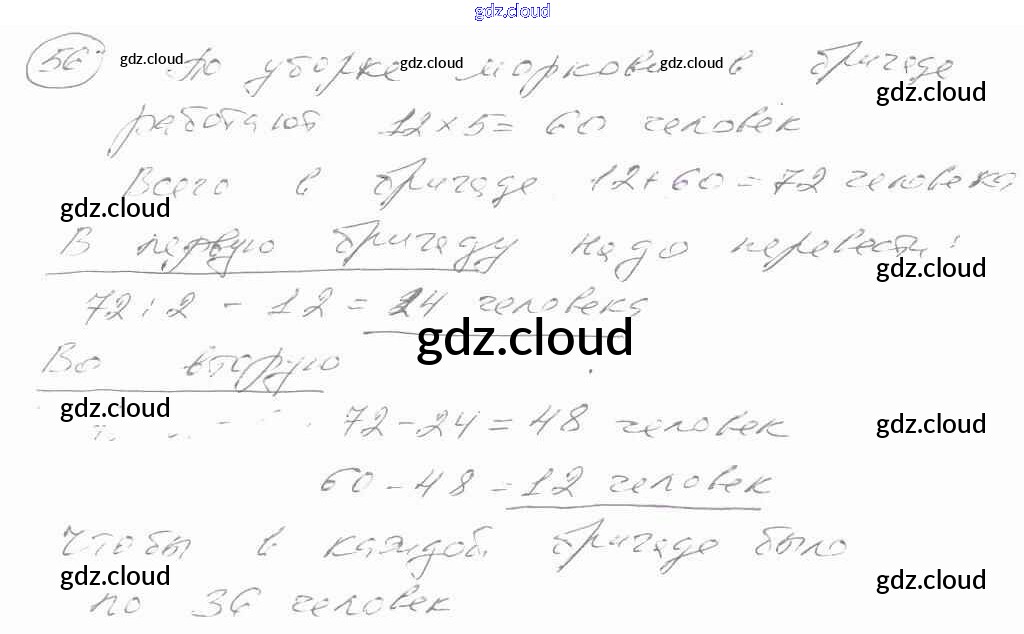 gdz.cloud
56 gdz.cloud По уборке gdz.cloud моркови gdz.cloud в бригаде
gdz.cloud
работают 12 × 5 = 60 человек
Всего в бригаде 12 + 60 = 72 человека
gdz.cloud
В первую бригаду надо перевести:
gdz.cloud
72 : 2 - 12 = 24 человека
gdz.cloud
Во вторую
gdz.cloud
72 - 24 = 48 человек gdz.cloud
60 - 48 = 12 человек
Чтобы в каждой бригаде было
gdz.cloud gdz.cloud
по 36 человек